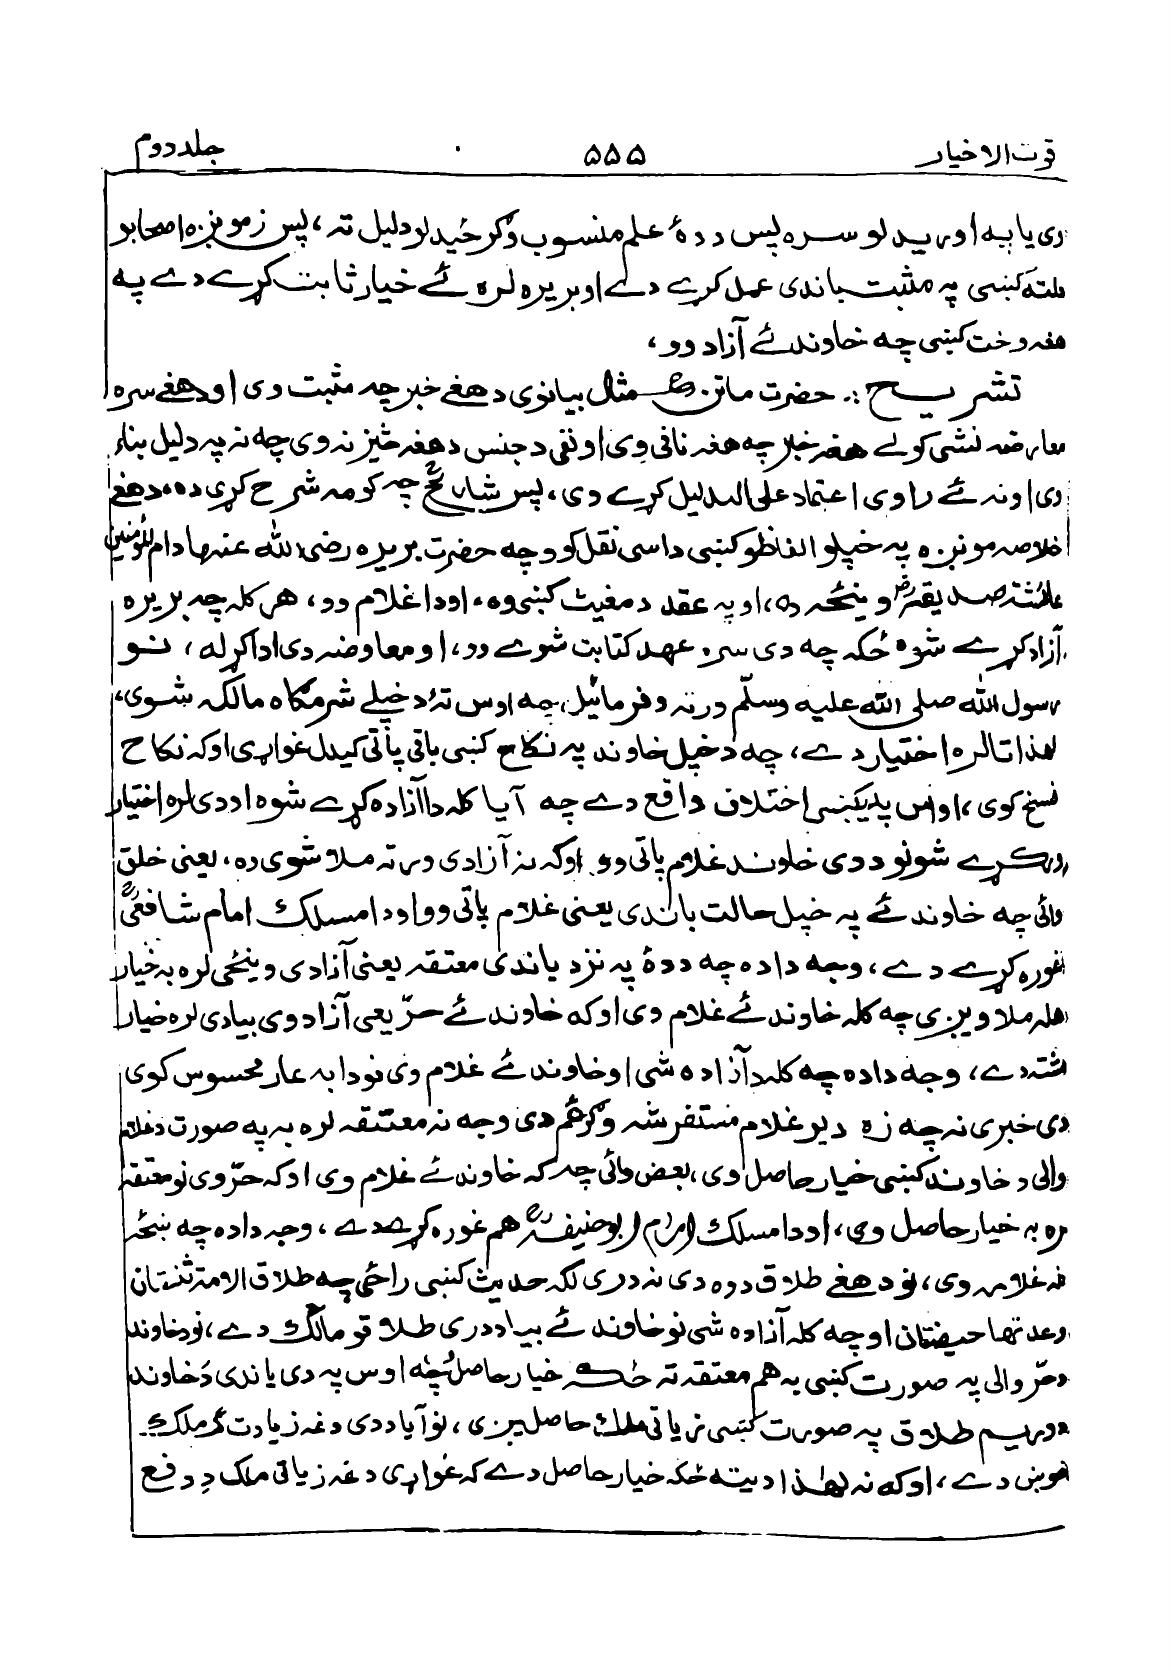 قوت الاخیار ۵۵۵ جلد دوم
دی یا په اوریدلو سره پس د دۀ علم منسوب وګرځیدلو دلیل ته، پس زمونږه اصحابو
ملته کښې په مثبت باندې عمل کړے دے او بریره لره ئے خیار ثابت کړے دے په
هغه وخت کښې چه خاوند ئے آزاد وو،
تشریح:. حضرت ماتنؒ مثال بیانوی د هغے خبر چه مثبت وی او هغے سره
معارضه نشی کولے هغه خبر چه هغه نافی وی او نفی د جنس د هغه څیز نه وی چه نه په دلیل بناء
وی او نه ئے راوی اعتماد علی الدلیل کړے وی، پس شارحؒ چه کومه شرح کړی ده، د هغے
خلاصه مونږه په خپلو الفاظو کښې داسې نقل کوو چه حضرت بریره رضی الله عنها د ام المؤمنین
عائشه صدیقےؓ وینځه وه، او په عقد د مغیث کښې وه، او دا غلام وو، هر کله چه بریره
آزاد کړے شوه ځکه چه دی سره عهد کتابت شوے وو، او معاوضه دی ادا کړله، نو
رسول الله صلی الله علیه وسلّم ورته وفرمائیل، چه اوس تۀ د خپلے شرمګاه مالکه شوی،
لهذا تا لره اختیار دے، چه د خپل خاوند په نکاح کښې باقی پاتې کیدل غواړی او که نکاح
فسخ کوی، او اس پدیکښې اختلاف واقع دے چه آیا کله دا آزاده کړے شوه او دی لره اختیار
ورکړے شو نو د دی خاوند غلام پاتې وو. او که نه آزادی ورته ملاؤ شوی ده، یعنی خلق
وائی چه خاوند ئے په خپل حالت باندې یعنی غلام پاتې وو او دا مسلک امام شافعیؒ
غوره کړے دے، وجه دا ده چه د دۀ په نزد باندې معتقه یعنی آزادی وینځی لره به خیار
هله ملاویږی چه کله خاوند ئے غلام وی او که خاوند ئے حرّ یعی آزاد وی بیا دی لره خیار
نشته دے، وجه دا ده چه کله دا آزاده شی او خاوند ئے غلام وی نو دا به عار محسوس کوی
دی خبری نه چه زه د یو غلام مستفرشه وګرځم دی وجه نه معتقه لره به په صورت د غلام
والی د خاوند کښې خیار حاصل وی، بعض وائی چه که خاوند ئے غلام وی او که حرّ وی نو معتقه
لره به خیار حاصل وی، او دا مسلک امام ابو حنیفهؒ هم غوره کړے دے، وجه دا ده چه ښځه
نو د هغے طلاق دوه دی نه دری لکه حدیث کښې راځی چه طلاق الامة ثنتان
وعدتها حیضتان او چه کله آزاده شی نو خاوند ئے بیا د دری طلاقو مالک دے، نو د خاوند
د حرّ والی په صورت کښې به هم معتقه ته ځکه خیار حاصل وی چه اوس په دی باندې د خاوند
د دریم طلاق په صورت کښې زیاتی ملک حاصلیږی، نو آیا د دی دغه زیادت ملک
خوښ دے، او که نه لهذا دیته ځکه خیار حاصل دے که غواړی دغه زیاتی ملک دِ دفع